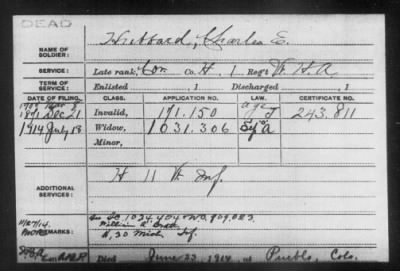 DEAD
NAME OF SOLDIER: Hubbard, Charles E.
SERVICE: Late rank, Co. H, 1 Reg't H. A.
TERM OF SERVICE: Enlisted , 1 Discharged , 1
DATE OF FILING. CLASS. APPLICATION NO. LAW. CERTIFICATE NO.
1891 Dec 21 Invalid, 171.150 243.811
1914 July 18 Widow, 1031.306 A
Minor,
ADDITIONAL SERVICES: H 11 Inf.
So 1024404 W.O. 709,023
11/27/14. William
REMARKS: H, 20 Mich Inf.
Died June 23, 1914, at Pueblo, Colo.